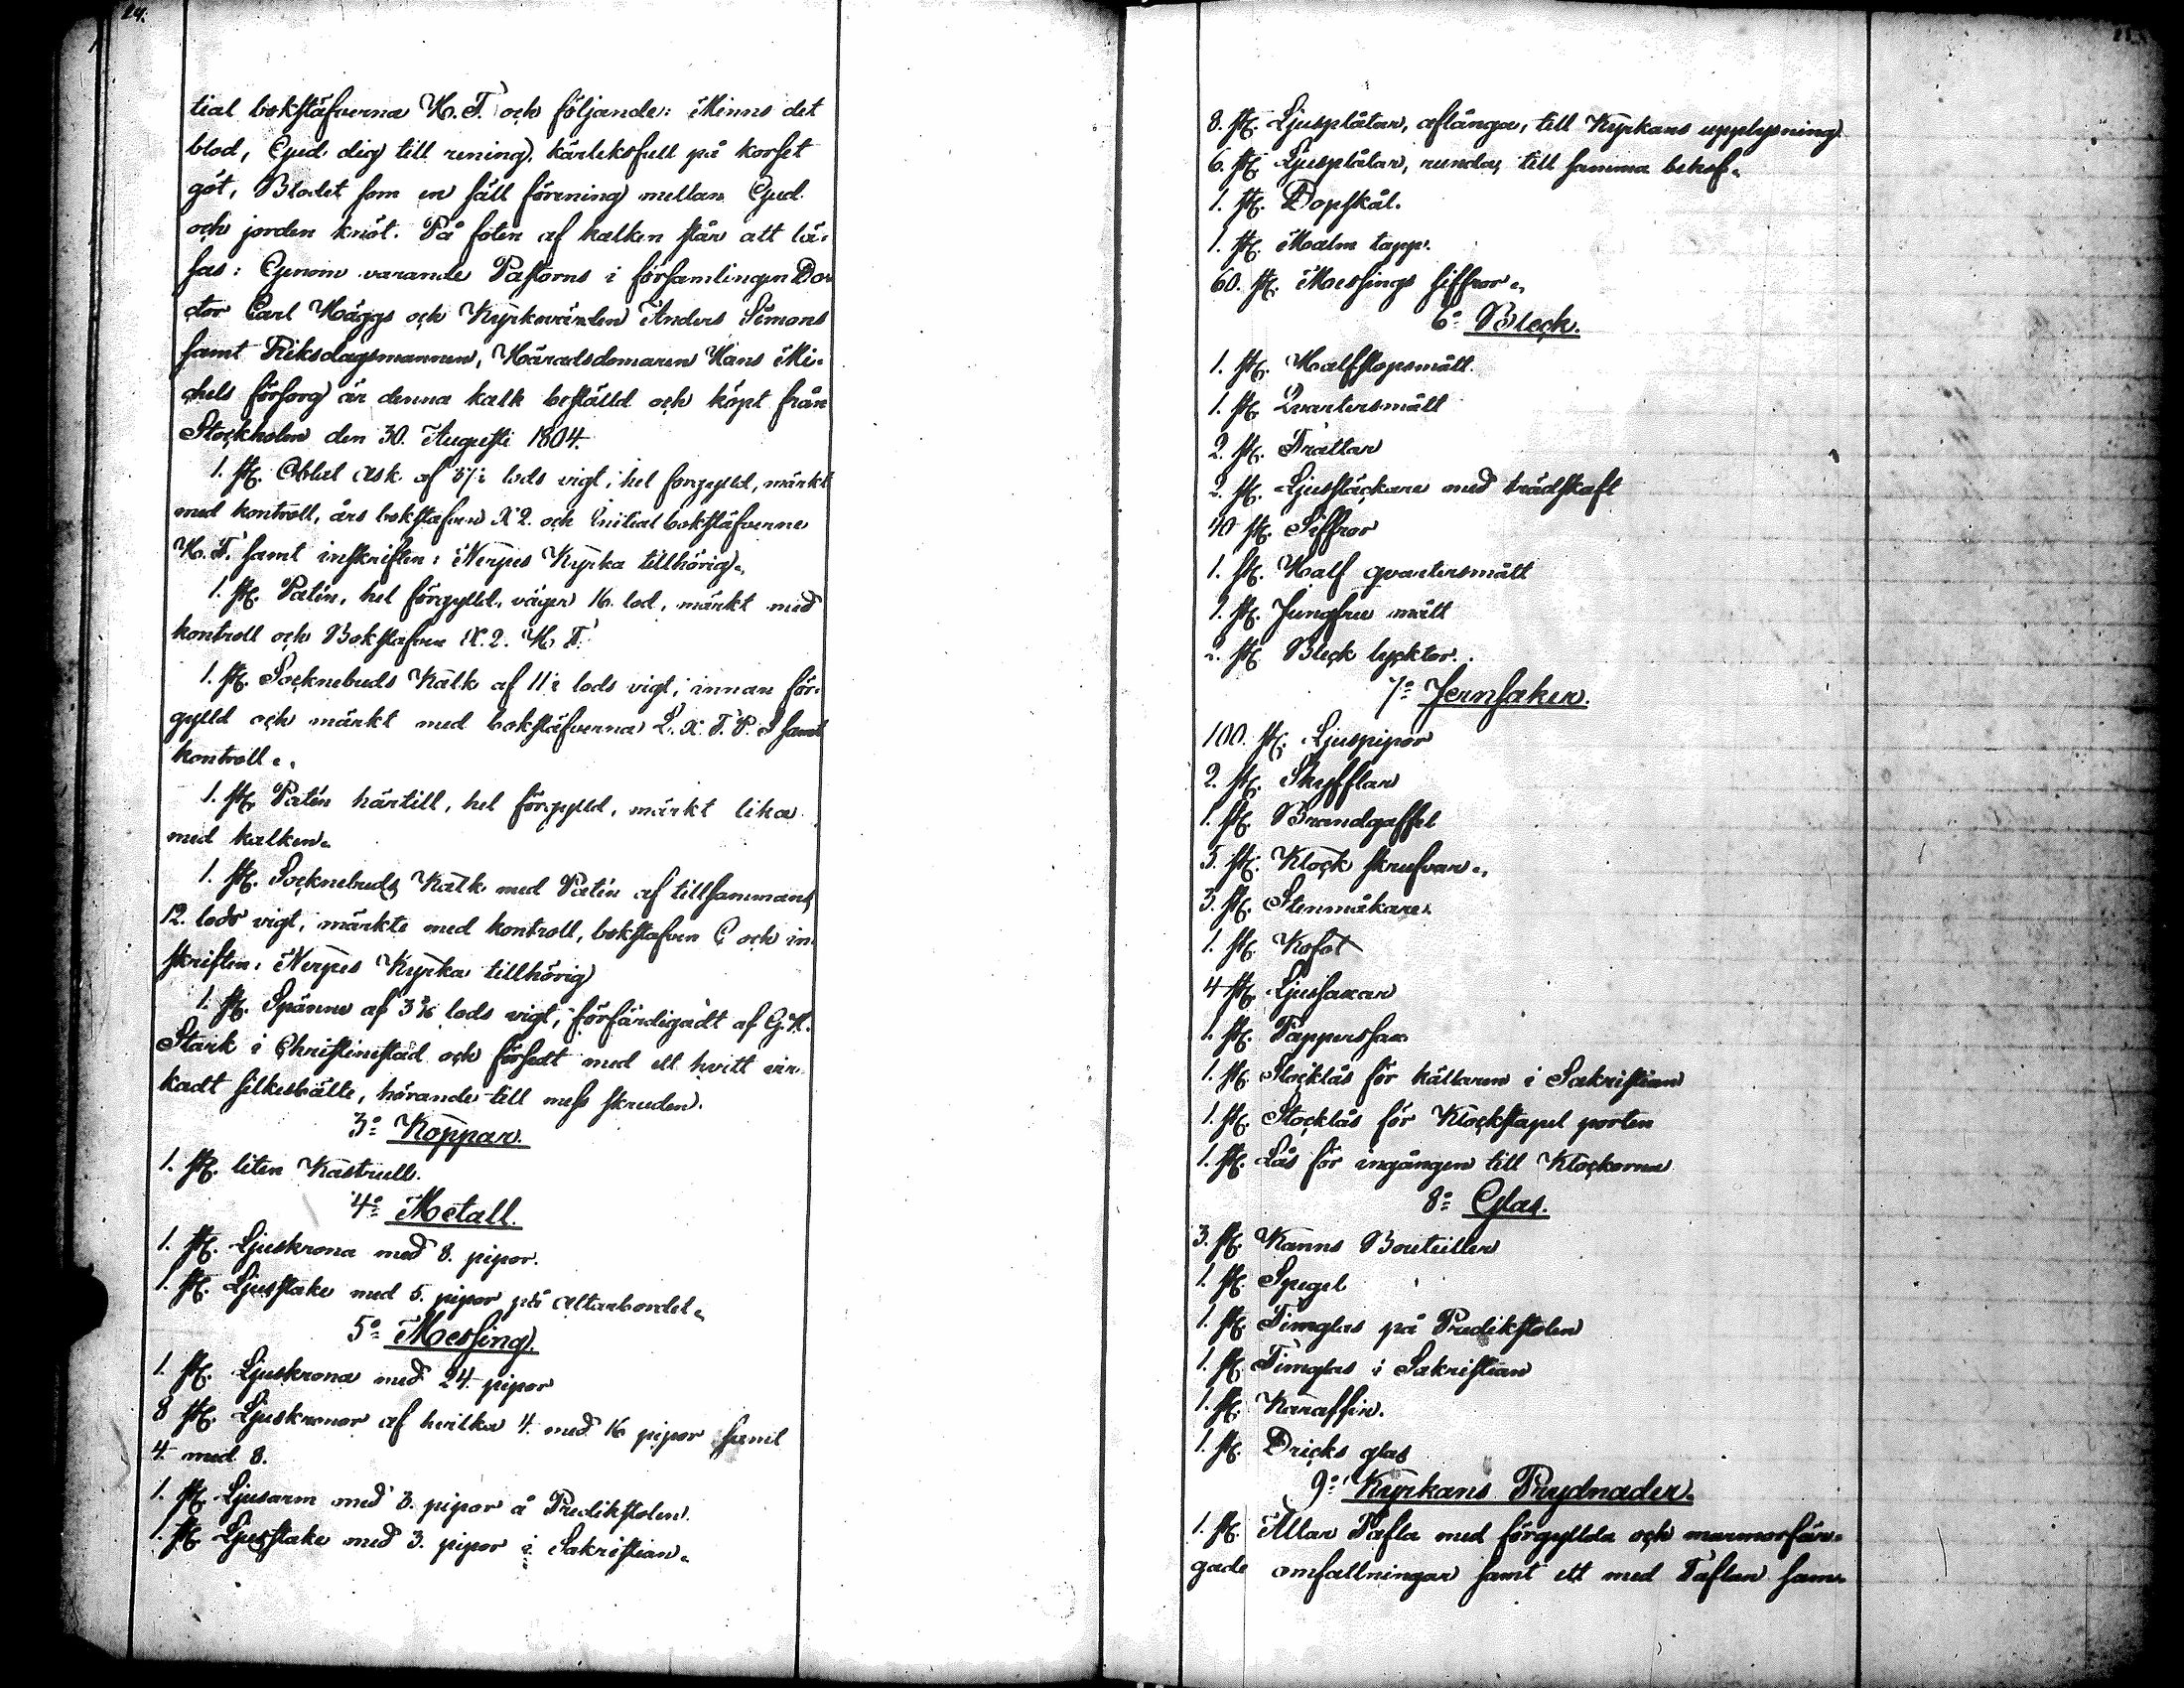 24.
tial bokstäfverna H. F. och följande: Minns det
blod, Gud dig till rening, kärleksfull på korset
göt, Blodet som en säll förening mellan Gud
och jorden knöt. På foten af kalken står att lä-
sas: Genom varande Pastorns i församlingen Do-
ctor Carl Häggs och Kyrkovärden Anders Simons
samt Riksdagsmannen, Häradsdomaren Hans Mi-
chels försorg är denna kalk beställd och köpt från
Stockholm den 30. Augusti 1804.
1. st. Oblat ask af lods vigt, hel förgylld, märkt
med kontroll, års bokstafven X 2. och Initial bokstäfverne
H. F. samt inskriften: Nerpes Kyrka tillhörig.
1. st. Patén, hel förgylld, väger 16. lod, märkt med
kontroll och Bokstafven X. 2. H. F.
1. st. Socknebuds Kalk af 11 lods vigt, innan för-
gylld och märkt med bokstäfverna L. X. F. P. S samt
kontroll.
1. st. Patén härtill, hel förgylld, märkt lika
med kalken.
1. st. Socknebuds Kalk med Patén af tillsammans
12. lods vigt, märkte med kontroll, bokstafven C och in-
skriften: Nerpes Kyrka tillhörig
1. st. Spänne af 3 lods vigt, förfärdigadt af G. K.
Stark i Christinestad och försedt med ett hvitt vir-
kadt silkesbälte, hörande till mess skruden.
3:o Koppar.
1. st. liten Kastrull.
4:o Metall.
1. st. Ljuskrona med 8. pipor.
1. st. Ljusstake med 5. pipor på altarbordet.
5:o Messing.
1. st. Ljuskrona med 24. pipor
8 st. Ljuskronor af hvilka 4. med 16 pipor samt
4. med 8.
1. st. Ljusarm med 3. pipor å Predikstolen.
1. st. Ljusstake med 3. pipor i Sakristian.
8. st. Ljusplåtar, aflånga, till Kyrkans upplysning
6. st. Ljusplåtar, runda, till samma behof.
1. st. Dopskål.
1. st. Malm tapp.
60. st. Messings siffror.
6:o Bleck.
1. st. Halfstopsmått.
1. st. Qvartersmått
2. st. Trattar
2. st. Ljussläckare med trädskaft
40 st. Siffror
1. st. Half qvartersmått
1. st. Jungfru mått
2. st. Bleck lycktor.
7:o Jernsaker.
100. st. Ljuspipor
2. st. Skyfflar
1. st. Brandgaffel
5. st. Klock skrufvar.
3. st. Stenmåkare.
1. st. Kofot
4 st. Ljussaxar
1. st. Papperssax
1. st. Stocklås för källaren i Sakristian
1. st. Stocklås för Klockstapel porten
1. st. Lås för ingången till Klockorna
8:o Glas.
3. st. Kanns Bouteiller
1. st. Spegel
1. st. Timglas på Predikstolen
1. st. Timglas i Sakristian
1. st. Karaffin.
1. st. Dricks glas
9:o Kyrkans Prydnader.
1. st. Altar Tafla med förgyllda och marmorfär-
gade omfattningar samt ett med Taflan sam-